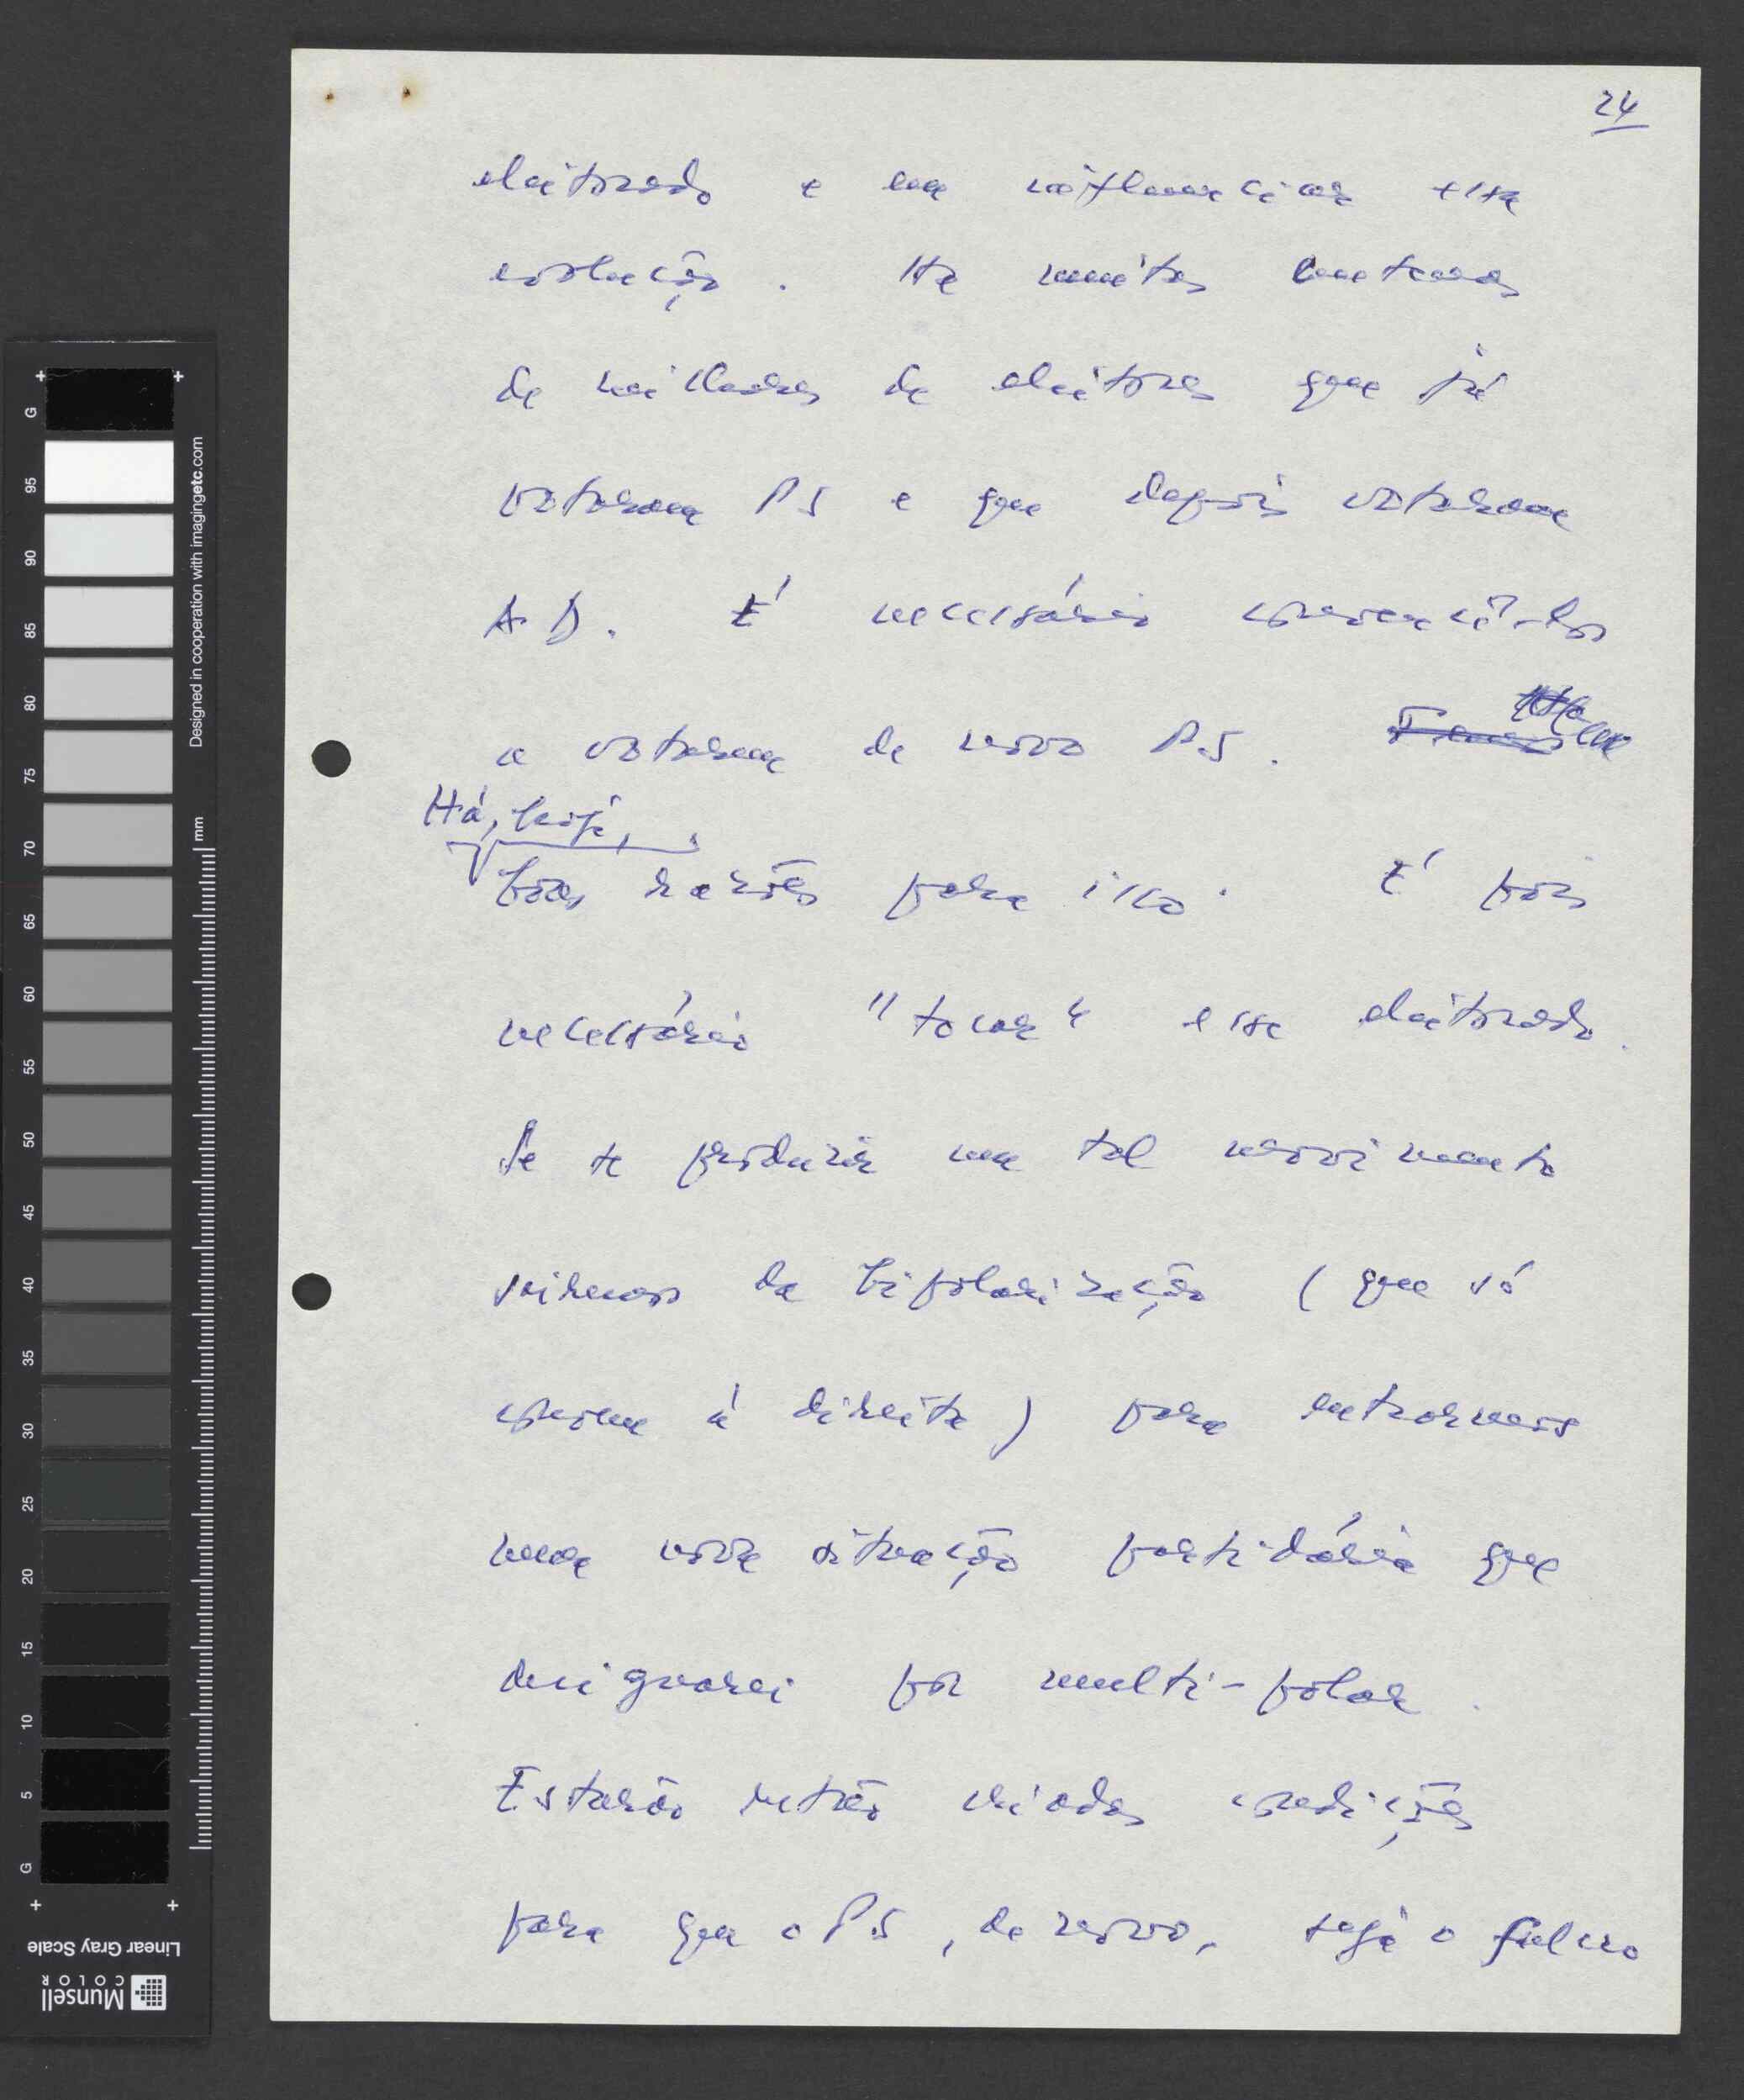 24
eleitorado e em influenciar essa
evolução. Há muitas centenas
de milhares de eleitores que já
votaram PS e que depois votaram
AD. É necessário convencê-los
a votarem de novo PS.
Há, hoje,
boas razões para isso. É pois
necessário "tocar" esse eleitorado.
Se se produzir um tal movimento
sairemos da bipolarização (que só
convem à direita) para entrarmos
numa nova situação partidária que
designarei por multi-polar.
Estarão então criadas condições
para que o PS, de novo, seja o fulcro
G 95 90 85 80 75 70 65 60 55 50 45 40 35 30 25 20 15 10 5 G
Designed in cooperation with imagingetc.com
mm
Linear Gray Scale
Munsell
COLOR